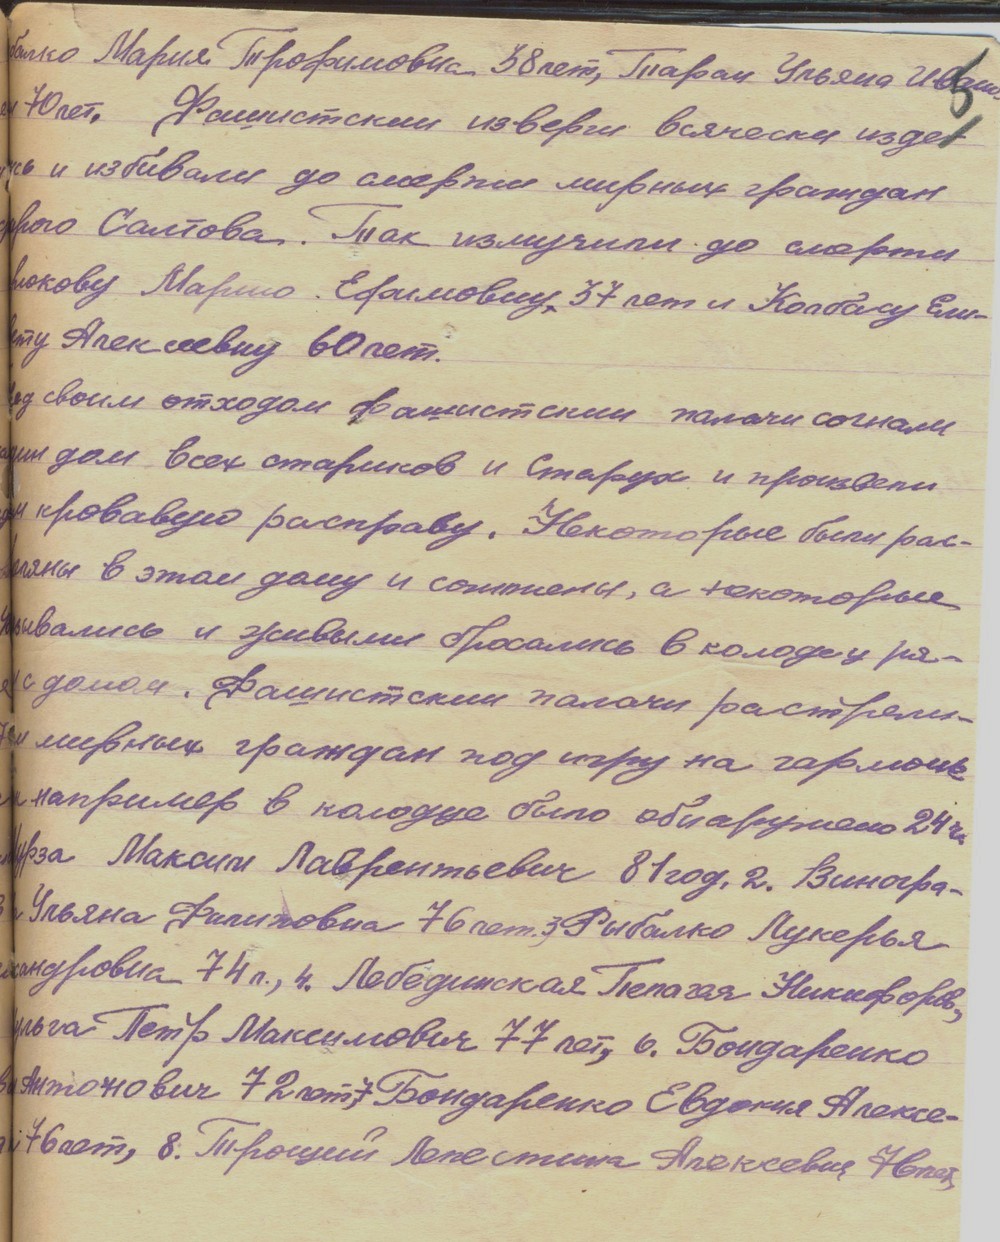 балко Мария Трофимовна 38 лет, Таран Ульяна Ивано
70 лет. Фашистскии изверги всячески изде-
ись и избивали до смерти мирных граждан
арого Салтова. Так измучили до смерти
люкову Марию Ефимовну, 37 лет и Колбасу Ели-
вету Алексеевну 60 лет.
ед своим отходом фашистскии палачи согнали
один дом всех стариков и старух и произвели
кровавую расправу. Некоторые были рас-
в этом дому и сожжены, а некоторые
ывались и живыми бросались в колодец ря-
с домом. Фашистскии палачи растрели-
мирных граждан под игру на гармоне
например в колодце было обнаружено 24 ч.
Мурза Максим Лаврентьевич 81 год, 2. Виногра-
Ульяна Филиповна 76 лет. 3, Рыбалко Лукерья
ксандровна 74 л., 4. Лебединская Пелагая Никифоров,
ульга Петр Максимович 77 лет, 6. Бондаренко
Антонович 72 лет, 7 Бондаренко Евдокия Алексе-
76 лет, 8. Троций Алексеевич 76 лет,